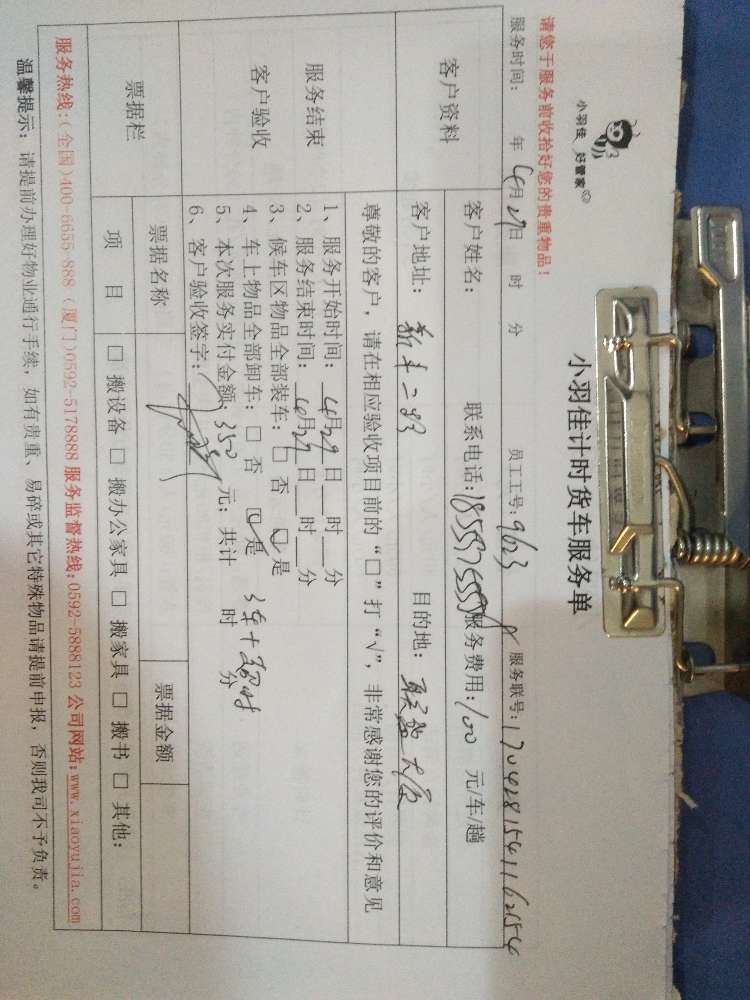 小羽佳 好管家
小羽佳计时货车服务单
请您于服务前收拾好您的贵重物品!
服务时间: 年 4月29日 时 分 员工工号: 9623 服务联号: 1704281541162154
客户资料
客户姓名: 联系电话: 服务费用: 100 元/车/趟
客户地址: 目的地: 联盟大厦
服务结束
客户验收
尊敬的客户,请在相应验收项目前的“□”打“√”,非常感谢您的评价和意见
1、服务开始时间: 4月29日 时 分
2、服务结束时间: 4月29日 时 分
3、候车区物品全部装车: □ 否 ☑ 是
4、车上物品全部卸车: □ 否 ☑ 是
5、本次服务实付金额: 350 元; 共计 时 分
6、客户验收签字:
票据栏
票据名称 票据金额
项 目 □ 搬设备 □ 搬办公家具 □ 搬家具 □ 搬书 □ 其他:
服务热线:(全国)400-6655-888 (厦门)0592-5178888 服务监督热线:0592-5888123 公司网站:www.xiaoyujia.com
温馨提示: 请提前办理好物业通行手续,如有贵重、易碎或其它特殊物品请提前申报,否则我司不予负责。